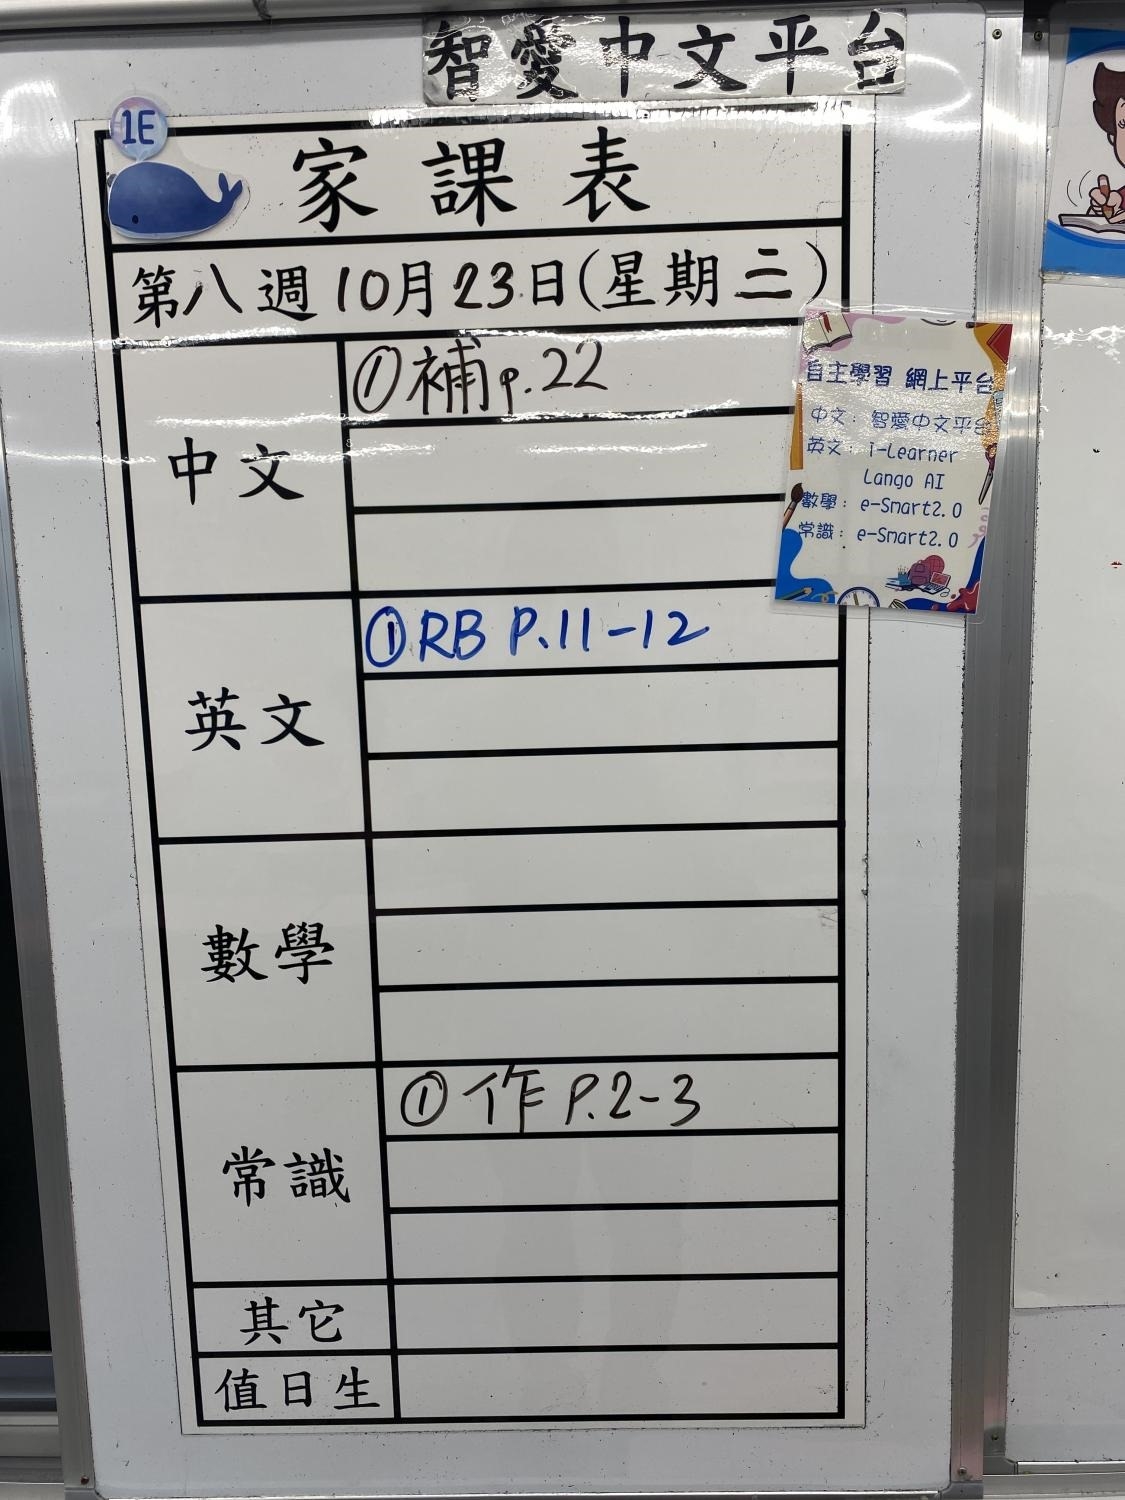 智愛中文平台
1E
家課表
第八週10月23日(星期二)
中文
①補p.22
自主學習 網上平台
中文：智愛中文平台
英文：i-Learner
Lango AI
數學：e-Smart2.0
常識：e-Smart2.0
英文
①RB P.11-12
數學
常識
①作 P.2-3
其它
值日生